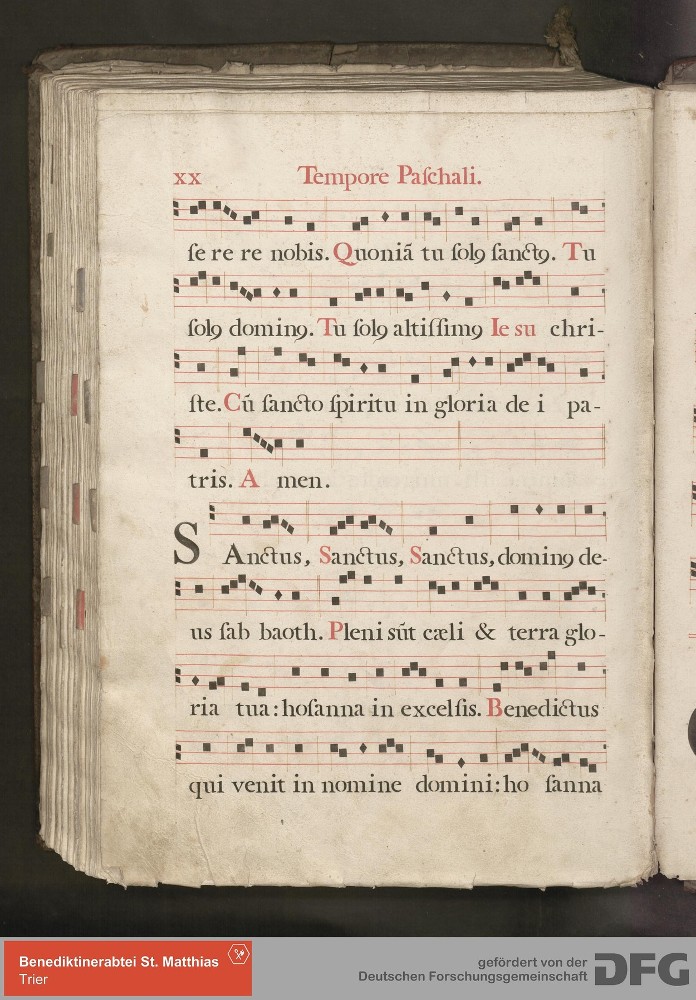 xx Tempore Paſchali.
ſe re re nobis. Quoniã tu ſolꝰ ſanctꝰ. Tu
ſolꝰ dominꝰ. Tu ſolꝰ altiſſimꝰ Ie su chri-
ſte. Cũ ſancto ſpiritu in gloria de i pa-
tris. A men.
SAnctus, Sanctus, Sanctus, dominꝰ de-
us ſab baoth. Pleni sũt cæli & terra glo-
ria tua: hoſanna in excelſis. Benedictus
qui venit in nomine domini: ho ſanna
Benediktinerabtei St. Matthias
Trier
gefördert von der
Deutschen Forschungsgemeinschaft
DFG